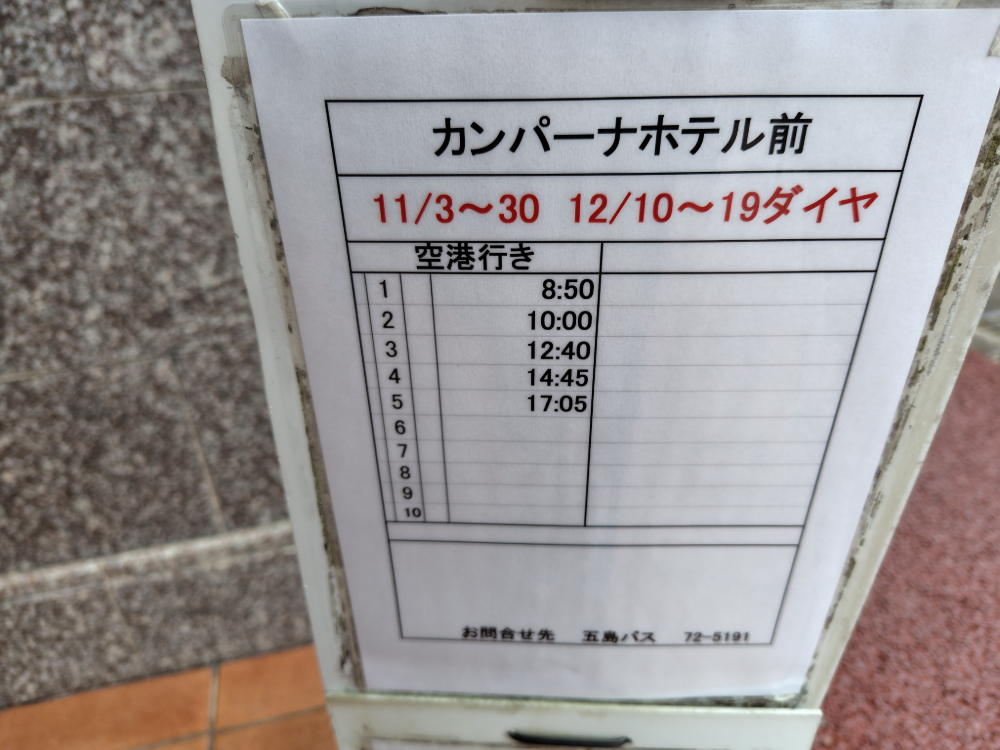 カンパーナホテル前
11/3～30 12/10～19ダイヤ
空港行き
1 8:50
2 10:00
3 12:40
4 14:45
5 17:05
6
7
8
9
10
お問合せ先 五島バス 72-5191